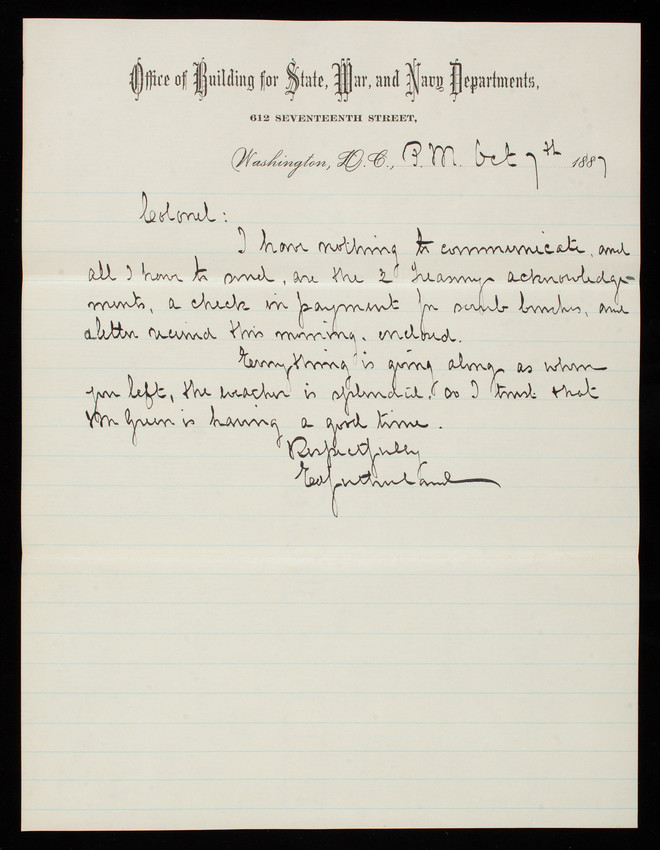 Office of Building for State, War, and Navy Departments,
612 SEVENTEENTH STREET,
Washington, D.C., P.M. Oct 7th 1887
Colonel:
I have nothing to communicate, and
all I have to send, are the 2 Treasury acknowledge-
ments, a check in payment for scrub brushes, and
a letter received this morning, enclosed.
Everything is going along as when
you left, the weather is splendid, so I trust that
Mr Green is having a good time.
Respectfully